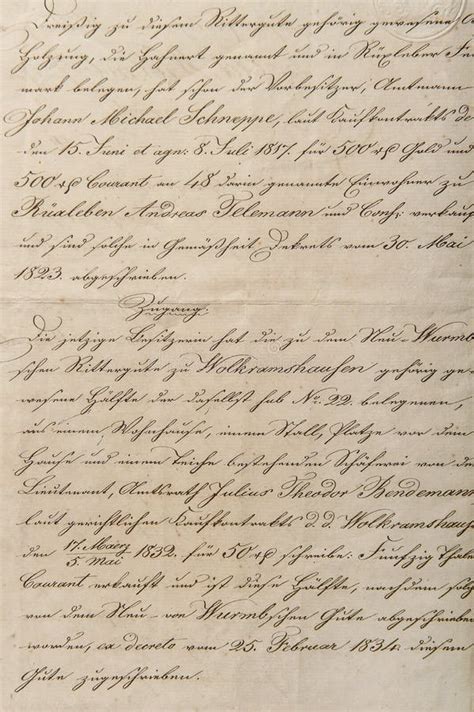 Dreißig zu diesem Rittergute gehörig gewesene
Holzung, die Hafnert genannt und in Rüxleber
mark belegen, hat schon der Vorbesitzer, Amtmann
Johann Michael Schneppe, laut Kaufkontrakts de
den 15. Juni et agn: 8. Juli 1817. für 500 rℓ Gold und
500 rℓ Courant an 48 darin genannte Einwohner zu
Rüxleben Andreas Telemann und Cons: verkau
und sind solche in Gemäßheit Dekrets vom 30. Mai
1823. abgeschrieben.
Zugang.
Die jetzige Besitzerin hat die zu dem Neu-Wurmb
schen Rittergute zu Wolkramshausen gehörig ge
wesene Hälfte der daselbst sub No. 22. belegenen,
aus einem Wohnhause, einem Stall, Platze vor dem
Hause und einem Teiche bestehenden Schäferei von de
Lieutenant, Amtsrath Julius Theodor Bendemann
laut gerichtlichen Kaufkontrakts d. d. Wolkramshaus
den 17. März/5. Mai 1832. für 50 rℓ schreibe: Funfzig Thale
Courant erkauft und ist diese Hälfte, nachdem solch
von dem Neu-von Wurmbschen Gute abgeschrieben
worden, ex decreto vom 25. Februar 1834. diesem
Gute zugeschrieben.